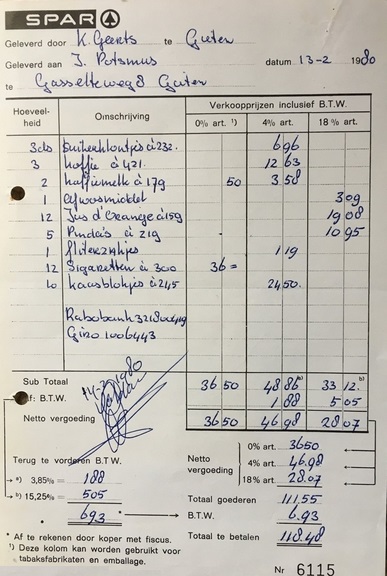 SPAR
Geleverd door K. Geerts te Gieten
Geleverd aan J. Potsmus datum 13-2 1980
te Gasselteweg 8 Gieten
Hoeveel- heid Omschrijving Verkoopprijzen inclusief B.T.W.
0% art. ¹) 4% art. 18% art.
3 ds suikerklontjes à 232. 696
3 koffie à 421. 12 63
2 koffiemelk à 179 50 3 58
1 afwasmiddel 309
12 Jus d'Orange à 159 19 08
5 Pinda's à 219 10 95
1 filterzakjes 1 19
12 Sigaretten à 300 36 =
10 kaasblokjes à 245 24 50.
Rabobank
Giro 1006443
Sub Totaal 36 50 48 86 ᵃ) 33 12. ᵇ)
Af: B.T.W. 1 88 5 05
Netto vergoeding 36 50 46 98 28 07
0% art. 3650
Netto vergoeding 4% art. 46.98
18% art. 28.07
Terug te vorderen B.T.W.
ᵃ) 3,85% = 188
ᵇ) 15,25% = 505
693 *
Totaal goederen 111,55
B.T.W. 6.93
Totaal te betalen 118.48
* Af te rekenen door koper met fiscus.
¹) Deze kolom kan worden gebruikt voor
tabaksfabrikaten en emballage.
Nr 6115